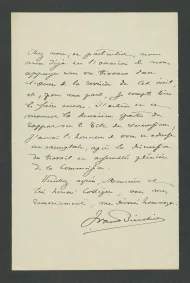 Chez nous, en particulier, nous
avons déjà eu l'occasion de nous
appuyer sur ce travail dans
l'œuvre de la révision de
pour ma part, je compte bien
le faire encore. J'achève en ce
moment la deuxième partie du
rapport sur le titre
J'aurai l'honneur de vous en adresser
un exemplaire, après la discussion
du travail en assemblée générale
de la Commission.
Veuillez agréer, Monsieur et
très honoré Collègue, avec mes
remerciements, mes sincères hommages.